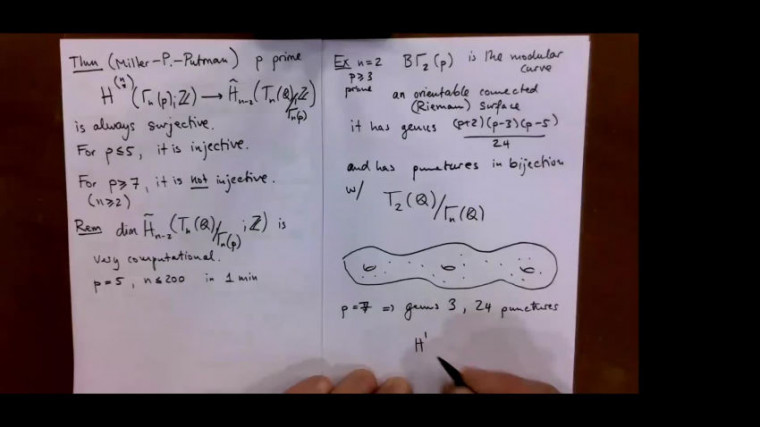 Thm (Miller-P.-Putman) p prime
H^(n choose 2) (Γn(p); ℤ) → H̃n-2 (Tn(ℚ)/Γn(p); ℤ)
is always surjective.
For p ≤ 5, it is injective.
For p ≥ 7, it is not injective.
(n ≥ 2)
Rem dim H̃n-2 (Tn(ℚ)/Γn(p); ℤ) is
very computational.
p = 5, n ≤ 200 in 1 min
Ex n=2 BΓ2(p) is the modular
p ≥ 3 curve
prime an orientable connected
(Riemann) surface
it has genus (p+2)(p-3)(p-5)/24
and has punctures in bijection
w/ T2(ℚ)/Γn(ℚ)
p = 7 ⇒ genus 3, 24 punctures
H¹